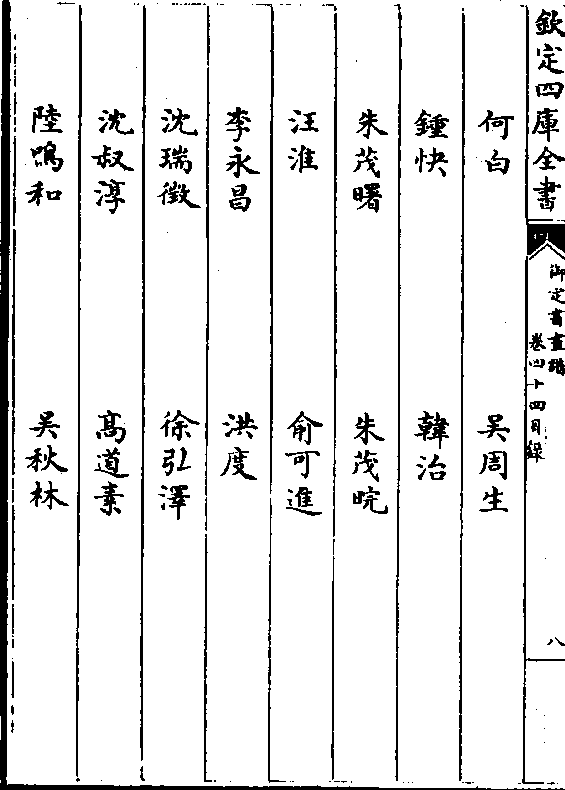 欽定四庫全書
御定書畫譜
卷四十四目録
八
何白　吳周生
鍾快　韓治
朱茂曙　朱茂晥
汪淮　俞可進
李永昌　洪度
沈瑞徵　徐弘澤
沈叔淳　高道素
陸鳴和　吳秋林